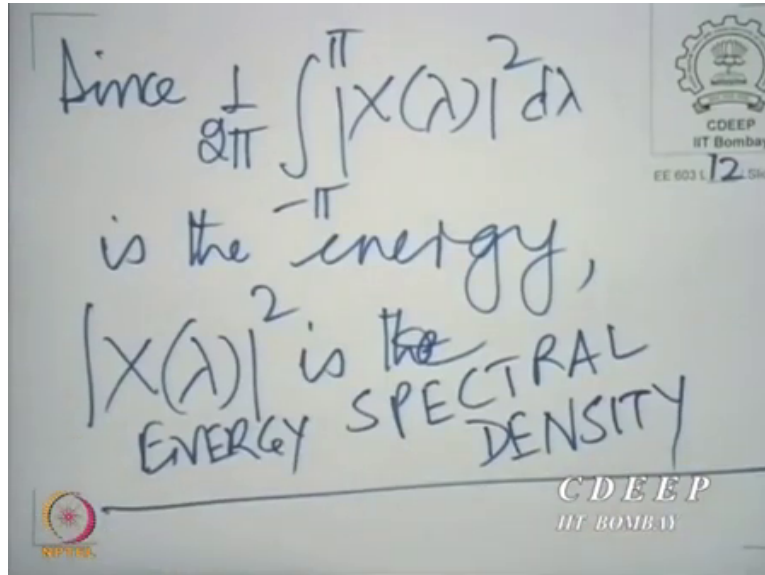 Since 1/2π ∫_{-π}^{π} |X(λ)|² dλ
is the energy,
|X(λ)|² is the
ENERGY SPECTRAL
DENSITY
CDEEP
IIT Bombay
EE 603 L 12 Sli
NPTEL
CDEEP
IIT BOMBAY